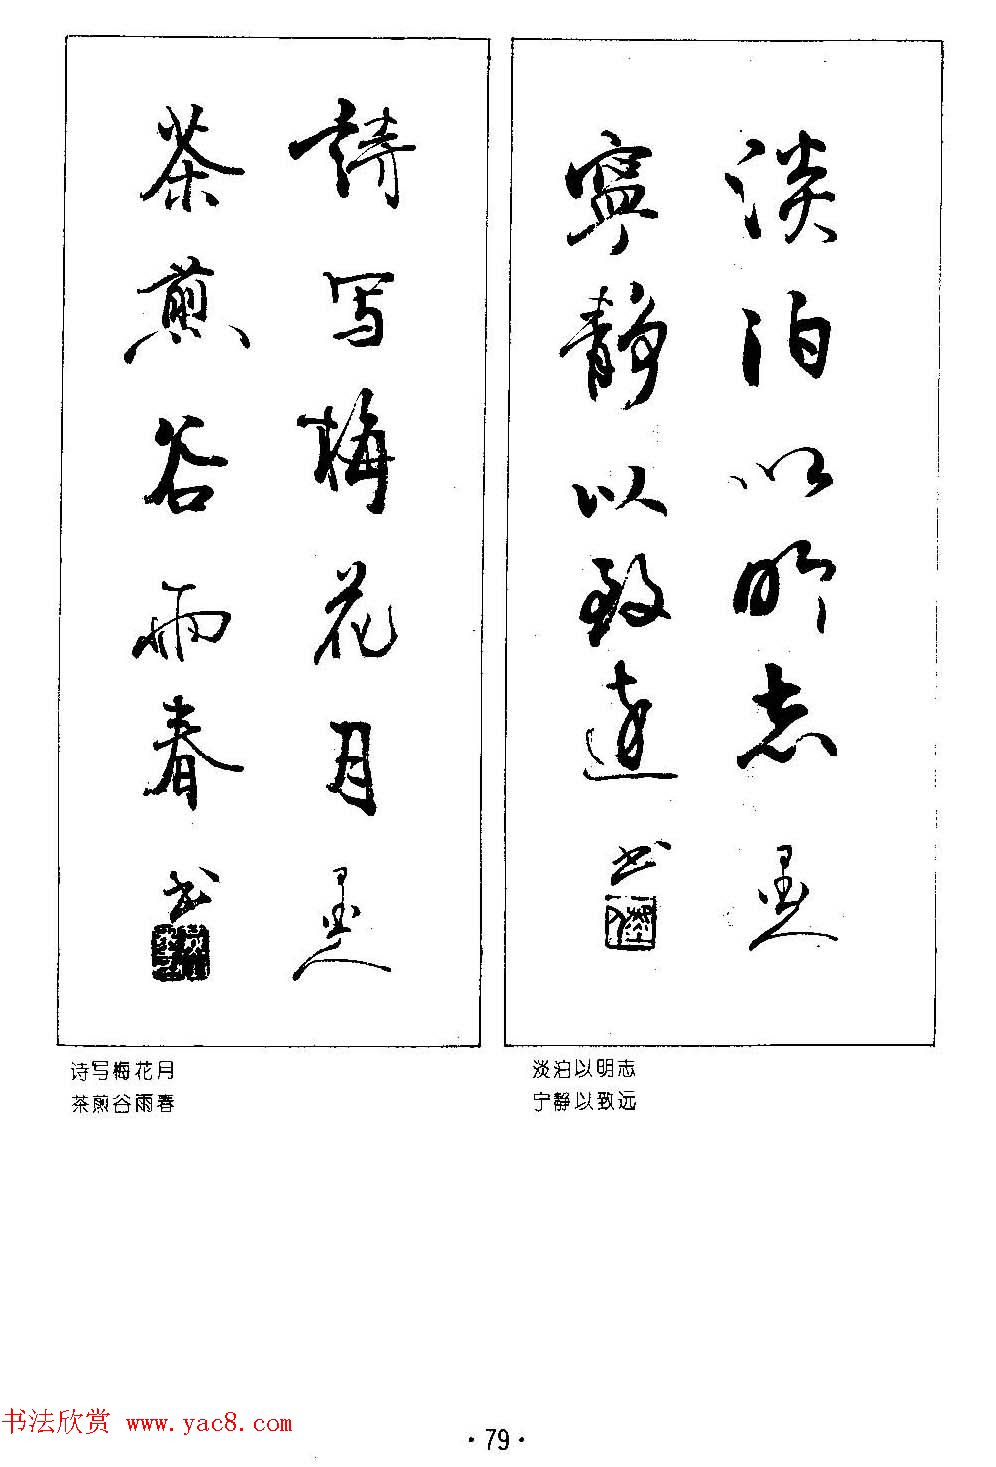 淡泊以明志墨人
寧静以致远书
詩写梅花月墨人
茶煎谷雨春书
淡泊以明志
宁静以致远
诗写梅花月
茶煎谷雨春
书法欣赏 www.yac8.com
·79·